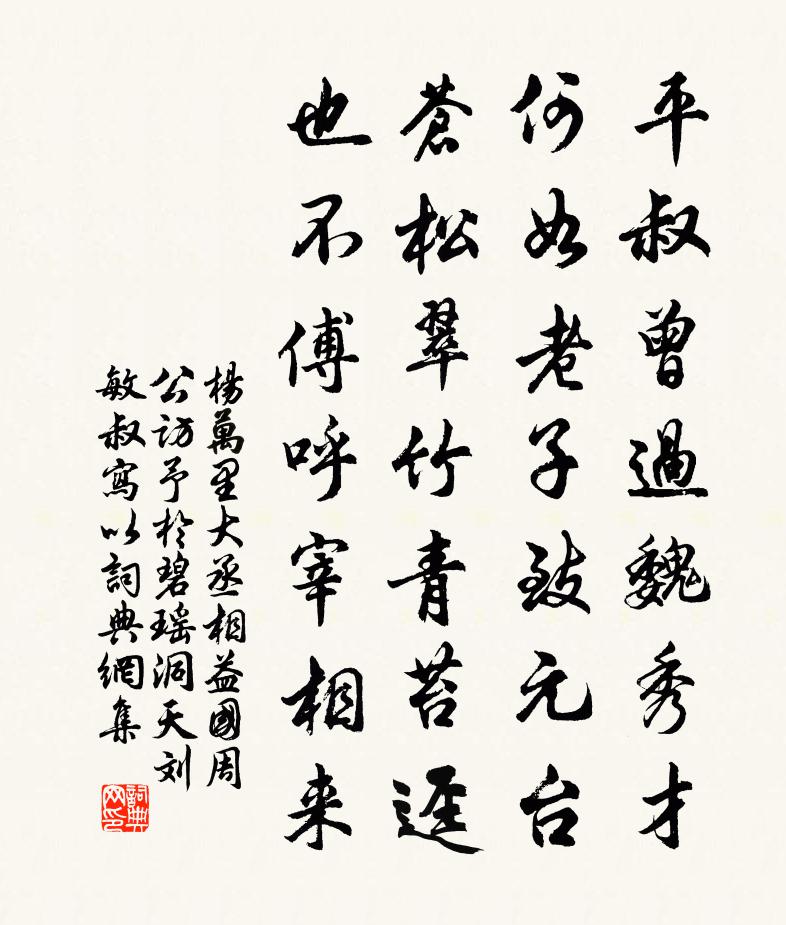 平叔曾過魏秀才
何如老子致元台
蒼松翠竹青苔逕
也不傳呼宰相来
楊萬里大丞相益國周
公訪予於碧瑶洞天刘
敏叔寫以詞典網集
詞典网印